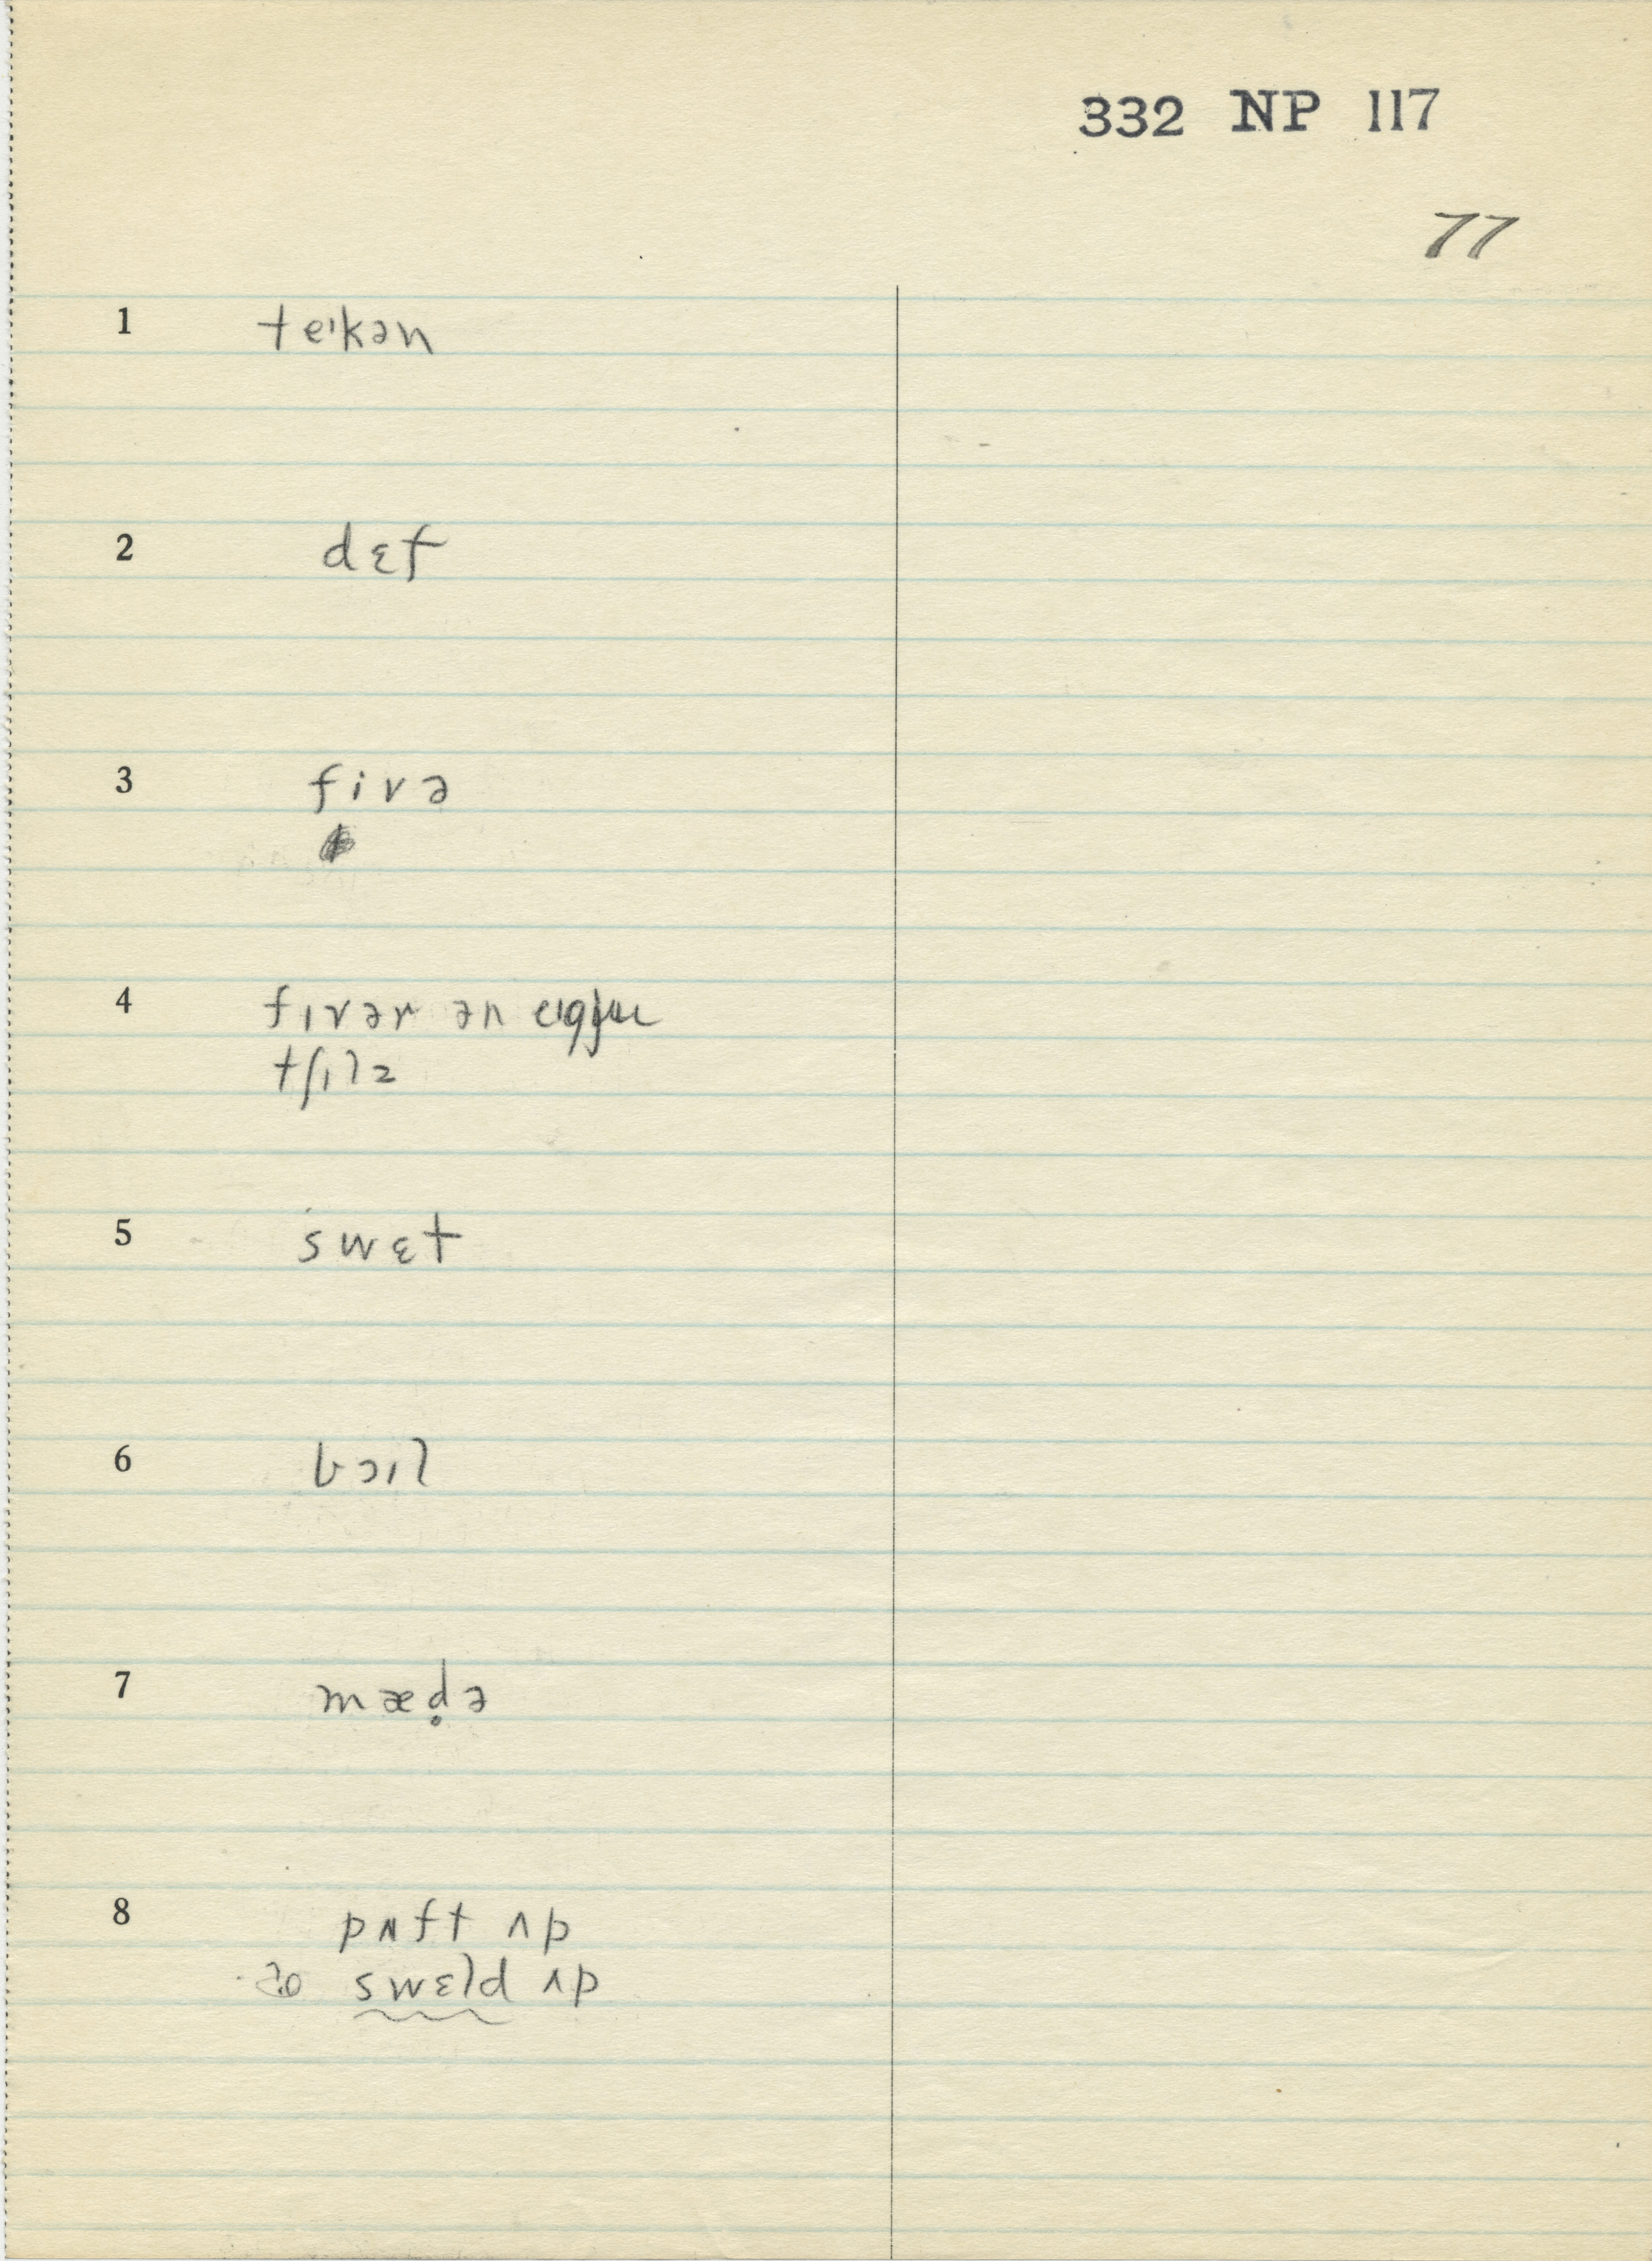 332 NP 117
77
1 teɪkən
2 dɛf
3 fivə
4 fɪvər ən eɪgju
tʃɪlz
5 swɛt
6 bɔɪl
7 mæd̥ə
8 pʌft ʌp
swɛld ʌp